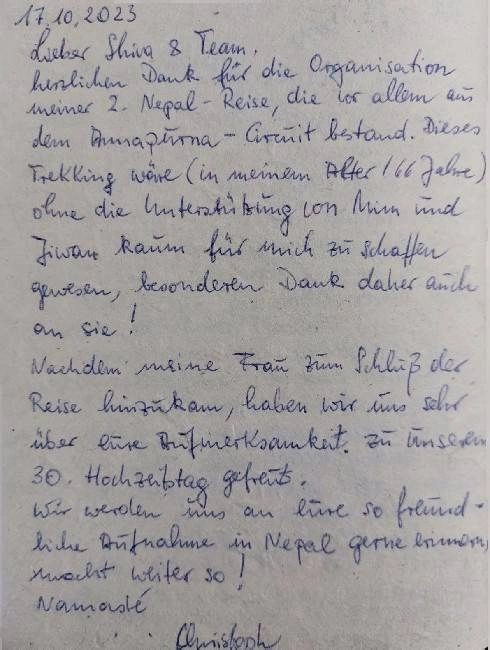 17.10.2023
Lieber Shiva & Team,
herzlichen Dank für die Organisation
meiner 2. Nepal-Reise, die vor allem aus
dem Annapurna-Circuit bestand. Dieses
Trekking wäre (in meinem Alter / 66 Jahre)
ohne die Unterstützung von Mim und
Jiwan kaum für mich zu schaffen
gewesen, besonderen Dank daher auch
an sie!
Nachdem meine Frau zum Schluß der
Reise hinzukam, haben wir uns sehr
über eure Aufmerksamkeit zu unserem
30. Hochzeitstag gefreut.
Wir werden uns an eure so freund-
liche Aufnahme in Nepal gerne erinnern,
macht weiter so!
Namasté
Christoph